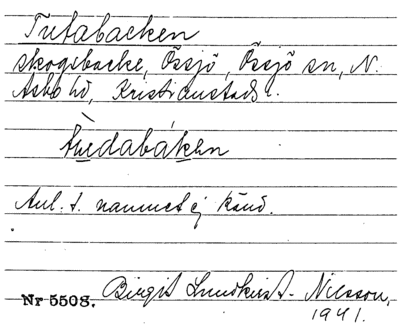 Tutabacken
skogsbacke, Össjö, Össjö sn, N.
Åsbo hd, Kristianstads.
tùdabáken
Anl. t. namnet ej känd.
Nr 5508. Birgit Lundkvist-Nilsson,
1941.